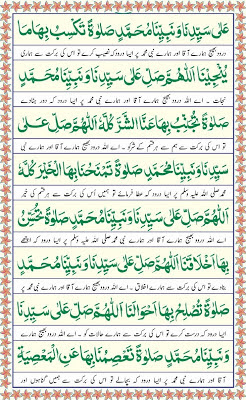 عَلٰى سَيِّدِنَا وَنَبِيِّنَا مُحَمَّدٍ صَلٰوةً تَكْسِبُ بِهَا مَا
درود بھیج ہمارے آقا اور ہمارے نبی محمد پر ایسا درود کہ نصیب کرے تو اس کی برکت سے ہماری
يُنْجِيْنَا اَللّٰهُمَّ صَلِّ عَلٰى سَيِّدِنَا وَنَبِيِّنَا مُحَمَّدٍ
نجات ۔ اے اللہ درود بھیج ہمارے آقا اور ہمارے نبی محمد پر ایسا درود کہ دور
صَلٰوةً تُجَنِّبُ بِهَا عَنَّا الشَّرَّ كُلَّهٗ اَللّٰهُمَّ صَلِّ عَلٰى
تو اس کی برکت سے ہم سے ہر قسم کے شر کو ۔ اے اللہ درود بھیج ہمارے آقا اور ہمارے نبی
سَيِّدِنَا وَنَبِيِّنَا مُحَمَّدٍ صَلٰوةً تَمْنَحُنَا بِهَا الْخَيْرَ كُلَّهٗ
محمد صلی اللہ علیہ وسلم پر ایسا درود کہ عطا فرمائے تو ہمیں اس کی برکت سے ہر قسم کی خیر
اَللّٰهُمَّ صَلِّ عَلٰى سَيِّدِنَا وَنَبِيِّنَا مُحَمَّدٍ صَلٰوةً تُحَسِّنُ
اے اللہ درود بھیج ہمارے آقا اور ہمارے نبی محمد صلی اللہ علیہ وسلم پر ایسا درود کہ اچھے
بِهَا اَخْلَاقَنَا اَللّٰهُمَّ صَلِّ عَلٰى سَيِّدِنَا وَنَبِيِّنَا مُحَمَّدٍ
بنادے تو اس کی برکت سے ہمارے اخلاق ۔ اے اللہ درود بھیج ہمارے آقا اور ہمارے نبی محمد پر
صَلٰوةً تُصْلِحُ بِهَا اَحْوَالَنَا اَللّٰهُمَّ صَلِّ عَلٰى سَيِّدِنَا
ایسا درود کہ درست کرے تو اس کی برکت سے ہمارے حالات کو ۔ اے اللہ درود بھیج ہمارے آقا
وَنَبِيِّنَا مُحَمَّدٍ صَلٰوةً تَعْصِمُنَا بِهَا عَنِ الْمَعْصِيَةِ
اور ہمارے نبی محمد پر ایسا درود کہ بچائے تو اس کی برکت سے ہمیں گناہوں اور